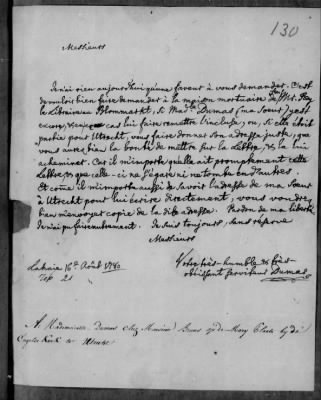 130
Messieurs
Je n'ai rien aujourd'hui qu'une faveur à vous demander. C'est
de vouloir bien faire demander à la maison mortuaire de Mr. Rey
le Libraire au Blommarkt, si Made. Dumas (ma Soeur) y est
encore, & en ce cas lui faire remettre l'incluse; ou, si elle étoit
partie pour Utrecht, vous faire donner son adresse juste, que
vous aurez bien la bonté de mettre sur la Lettre, & la lui
acheminer. Car il m'importe qu'elle ait promptement cette
Lettre, & que celle-ci ne s'égare ni ne tombe en d'autres.
Et come il m'importe aussi de savoir l'adresse de ma Soeur
à Utrecht pour lui écrire directement, vous voudrez
bien m'envoyer copie de la dite adresse. Pardon de ma liberté
Je suis toujours, sans réserve
Messieurs
Votre très-humble & très-
obéissant serviteur Dumas
Lahaie 18e. Août 1780
Rep 21
A Mademoiselle Dumas chez Monsieur
Kerk te Utrecht